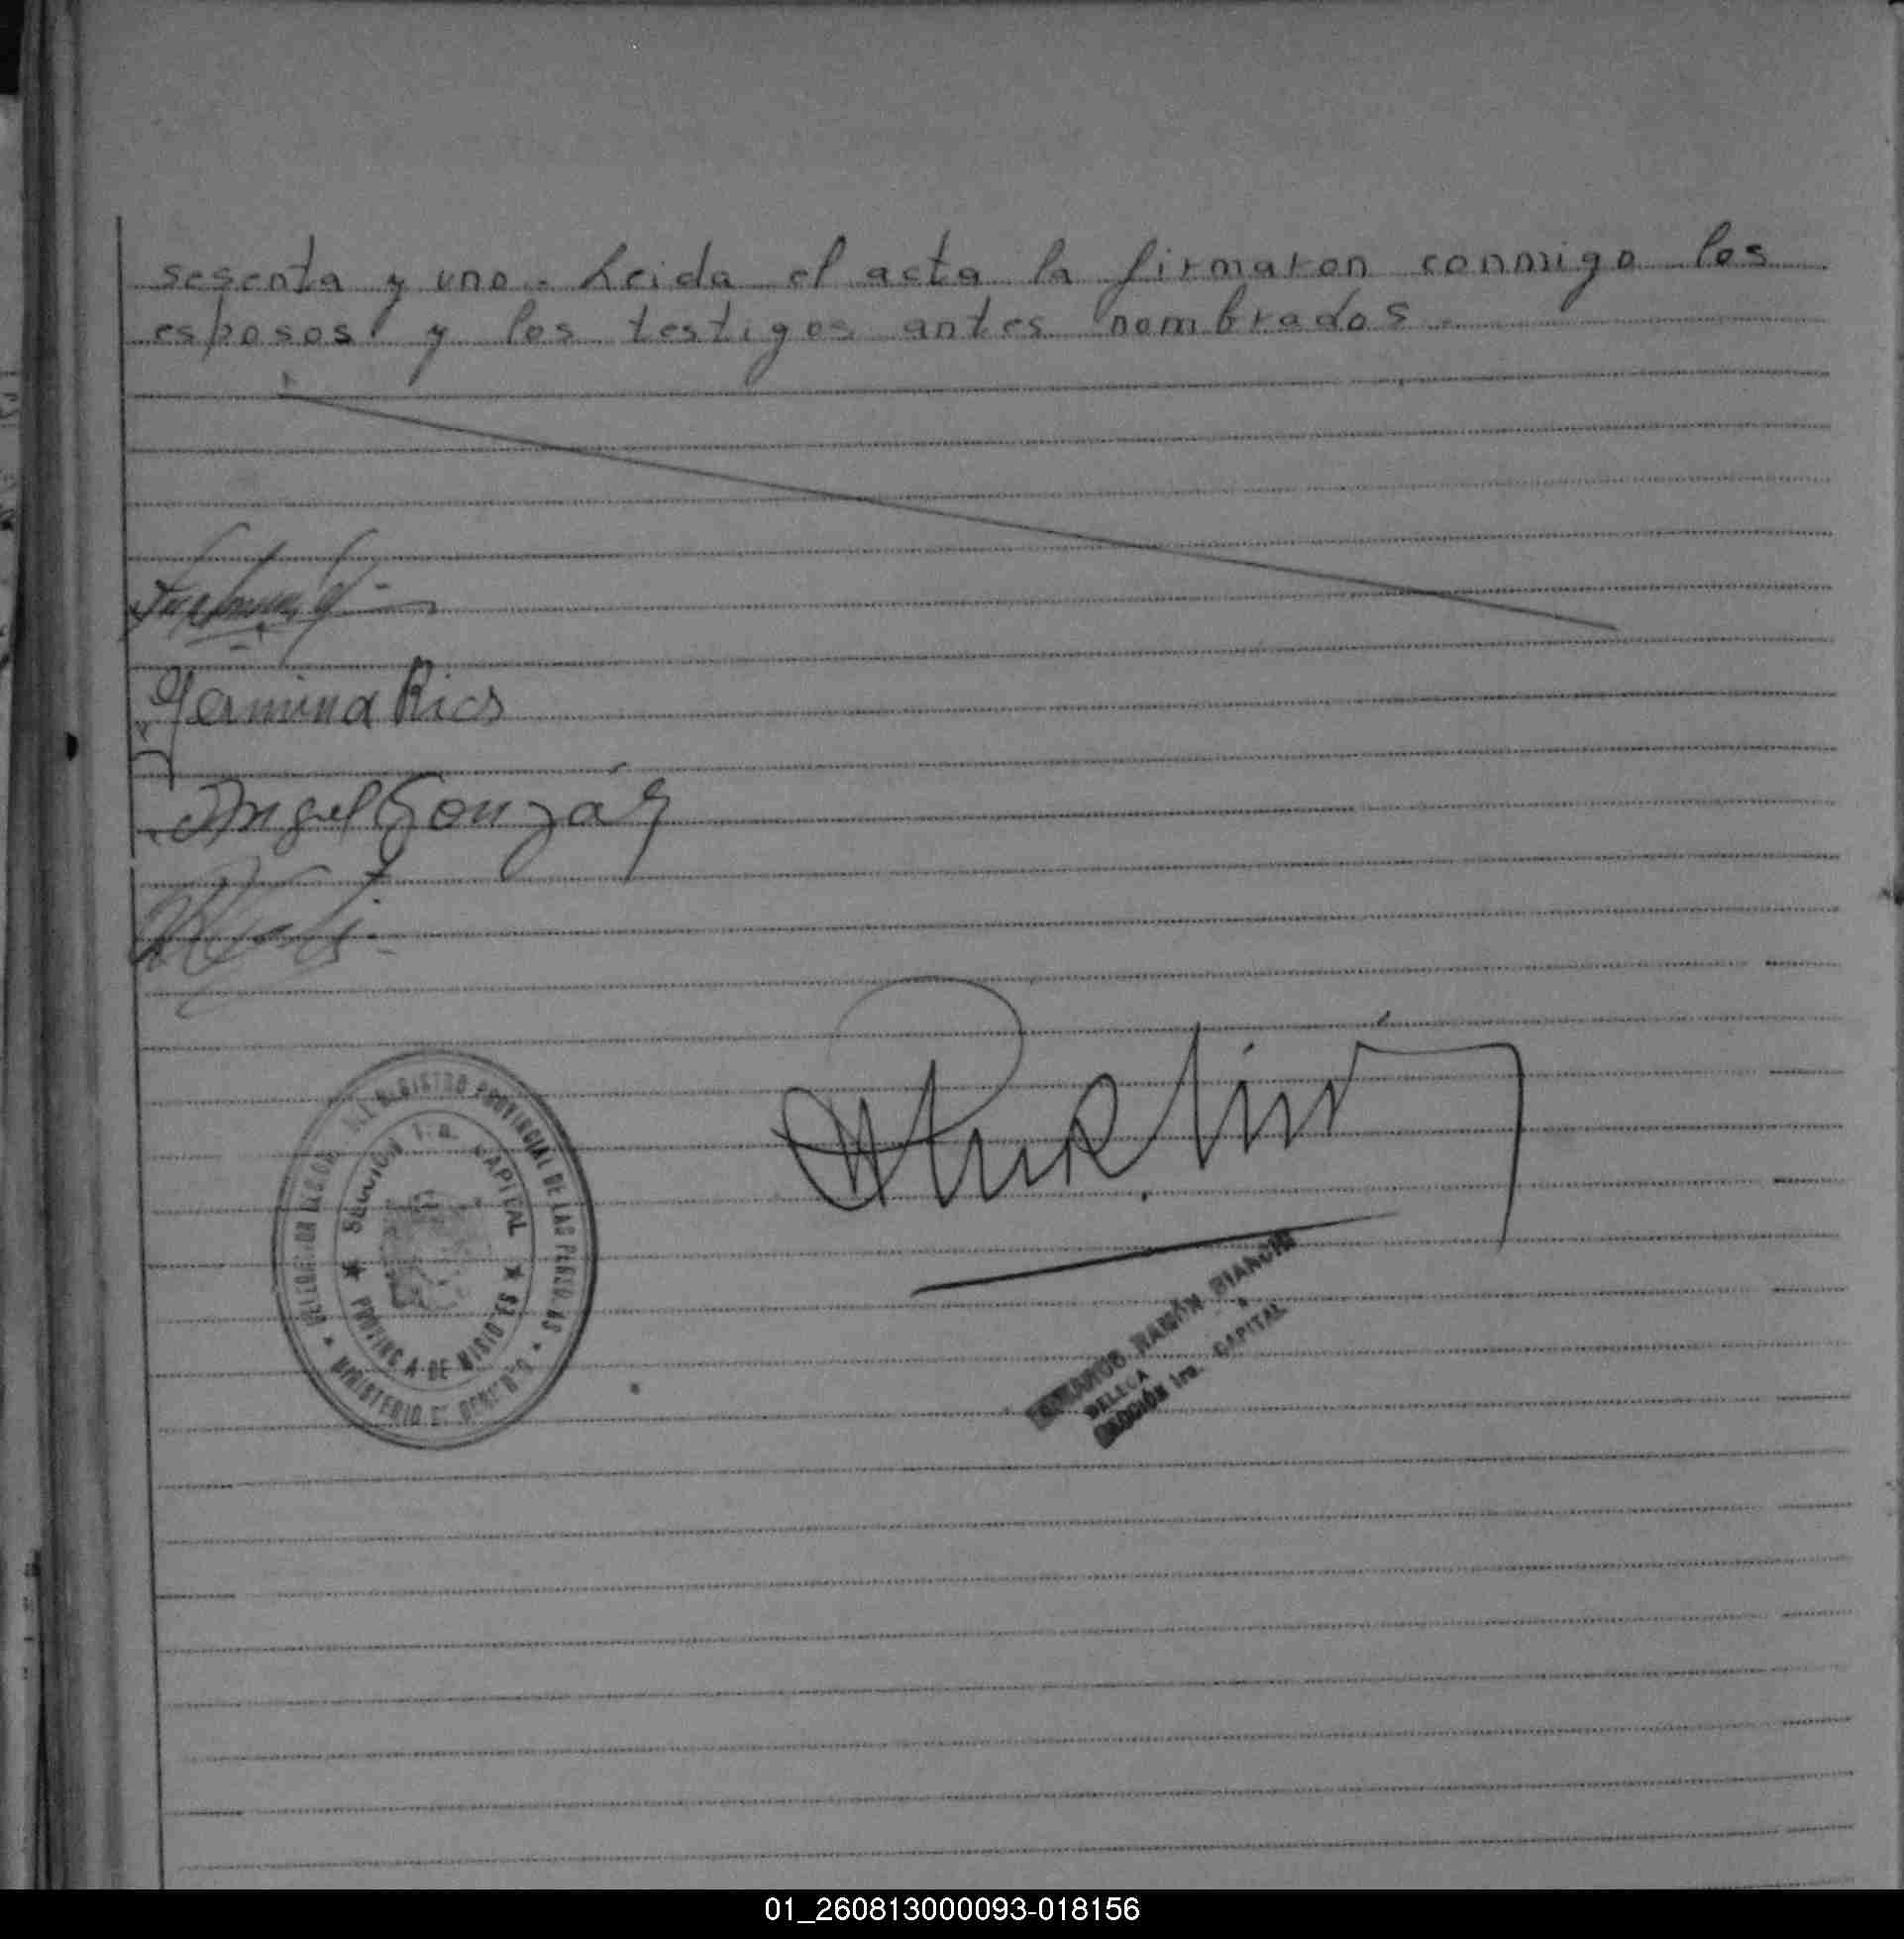 sesenta y uno.- Leida el acta la firmaron conmigo los
esposos y los testigos antes nombrados.-
Germina Rios
Angel González
DEL REGISTRO PROVINCIAL DE LAS PERSONAS
SECCION 1ra. CAPITAL
PROVINCIA DE MISIONES
MINISTERIO DE GOBIERNO
RAMÓN BIANCHI
SECCIÓN 1ra. CAPITAL
01_260813000093-018156